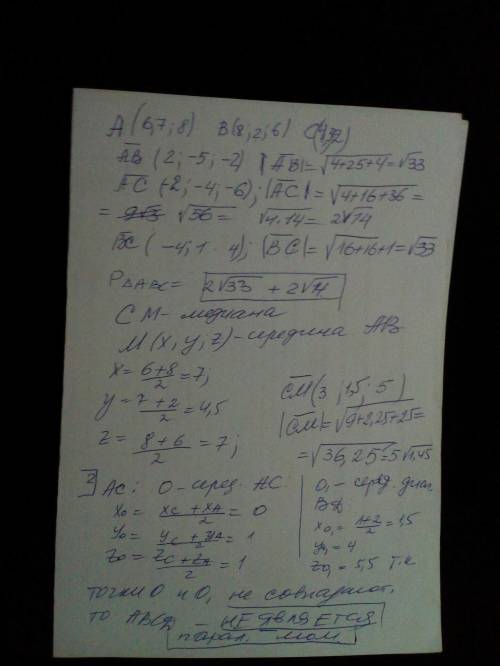 A (6,7; 8) B(8; 2; 6) C(4;3;2)
AB (2; -5; -2) |AB|= √4+25+4=√33
AC (-2; -4; -6); |AC|= √4+16+36 =
= √56 = √4·14 = 2√14
BC (-4; 1 -4); |BC|= √16+16+1=√33
P△ABC = 2√33 + 2√14
CM- медиана
M(x, y; z)- середина AB
x= 6+8/2 =7;
y= 7+2/2 =4,5
z= 8+6/2 =7;
CM(3; 1,5; 5)
|CM|=√9+2,25+25=
=√36,25=5√1,45
2] AC: O- серед. AC.
x₀= xC+xA/2 = 0
y₀= yC+yA/2 = 1
z₀= zC+zA/2 = 1
O₁- серед. диаг.
BD
x₀₁= 1+2/2 =1,5
y₀₁=4
z₀₁= 5,5 т.к
точки O и O₁ не совпадают,
то ABCD - НЕ ЯВЛЯЕТСЯ
парал. мом.